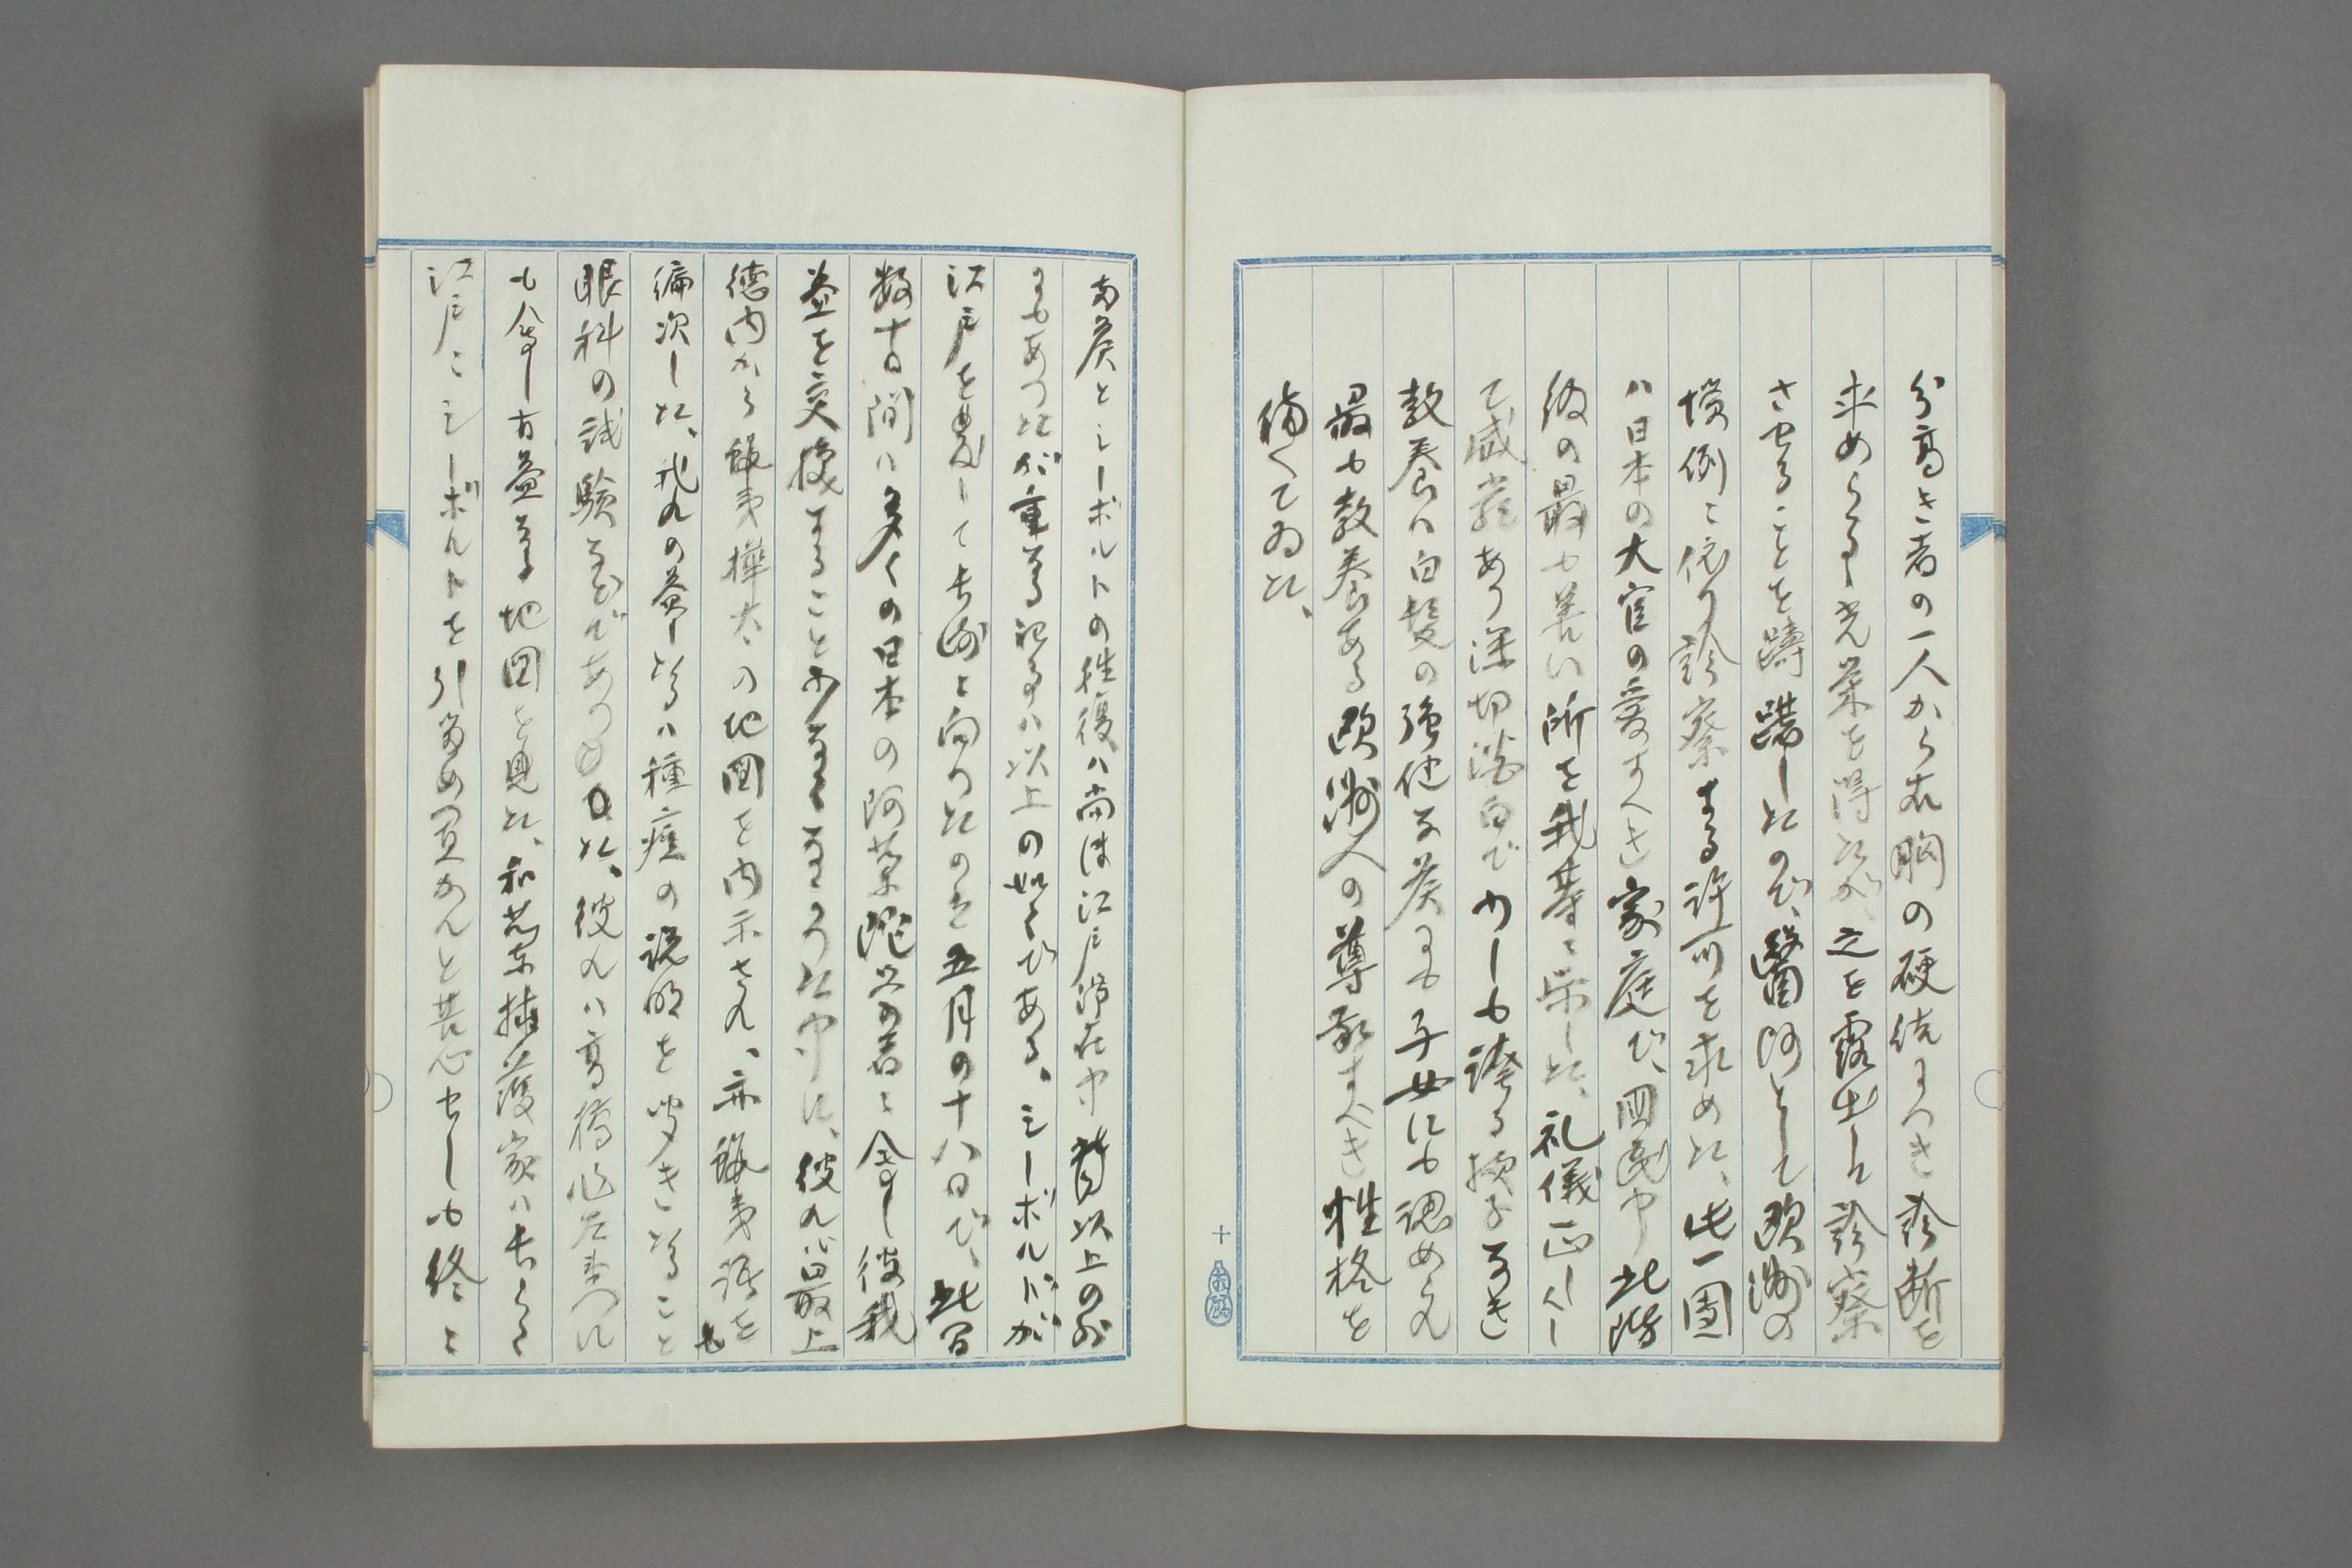 分高き者の一人から右胸の硬結につき診断を
求めらるゝ光栄を得たが、之を露出し診察
させることを躊躇したので、醫師として欧洲の
慣例に依り診察する許可を求めた、此一団
ハ日本の大官の愛すべき家庭で、国民中此階
級の最も善い所を我等に示した、礼儀正しく
て威嚴あり深切淡白で少しも誇る様子なき
教養ハ白髪の強健な侯にも子女にも認められ
最も教養ある欧洲人の尊敬すべき性格を
備へてゐた、
十
両侯とシーボルトの往復ハ尚ほ江戸滞在中昔以上の外
にもあつたが重なる記事ハ以上の如くである、シーボルトが
江戸を発して長崎に向つたのは五月の十八日で、此間
数十日間ハ多くの日本の阿蘭陀学者に会し彼我
益を交換すること少なくなかつた中に、彼れハ最上
徳内から蝦夷樺太の地図を内示され、亦蝦夷語をも
編次した、我れの益したるハ種痘の説明を聞きたること
眼科の試験などであつた、彼れハ高橋作左衛門に
も会し有益なる地図を見た、和蘭東插護家ハ長らく
江戸にシーボルトを引留め置かんと苦心せしも終に